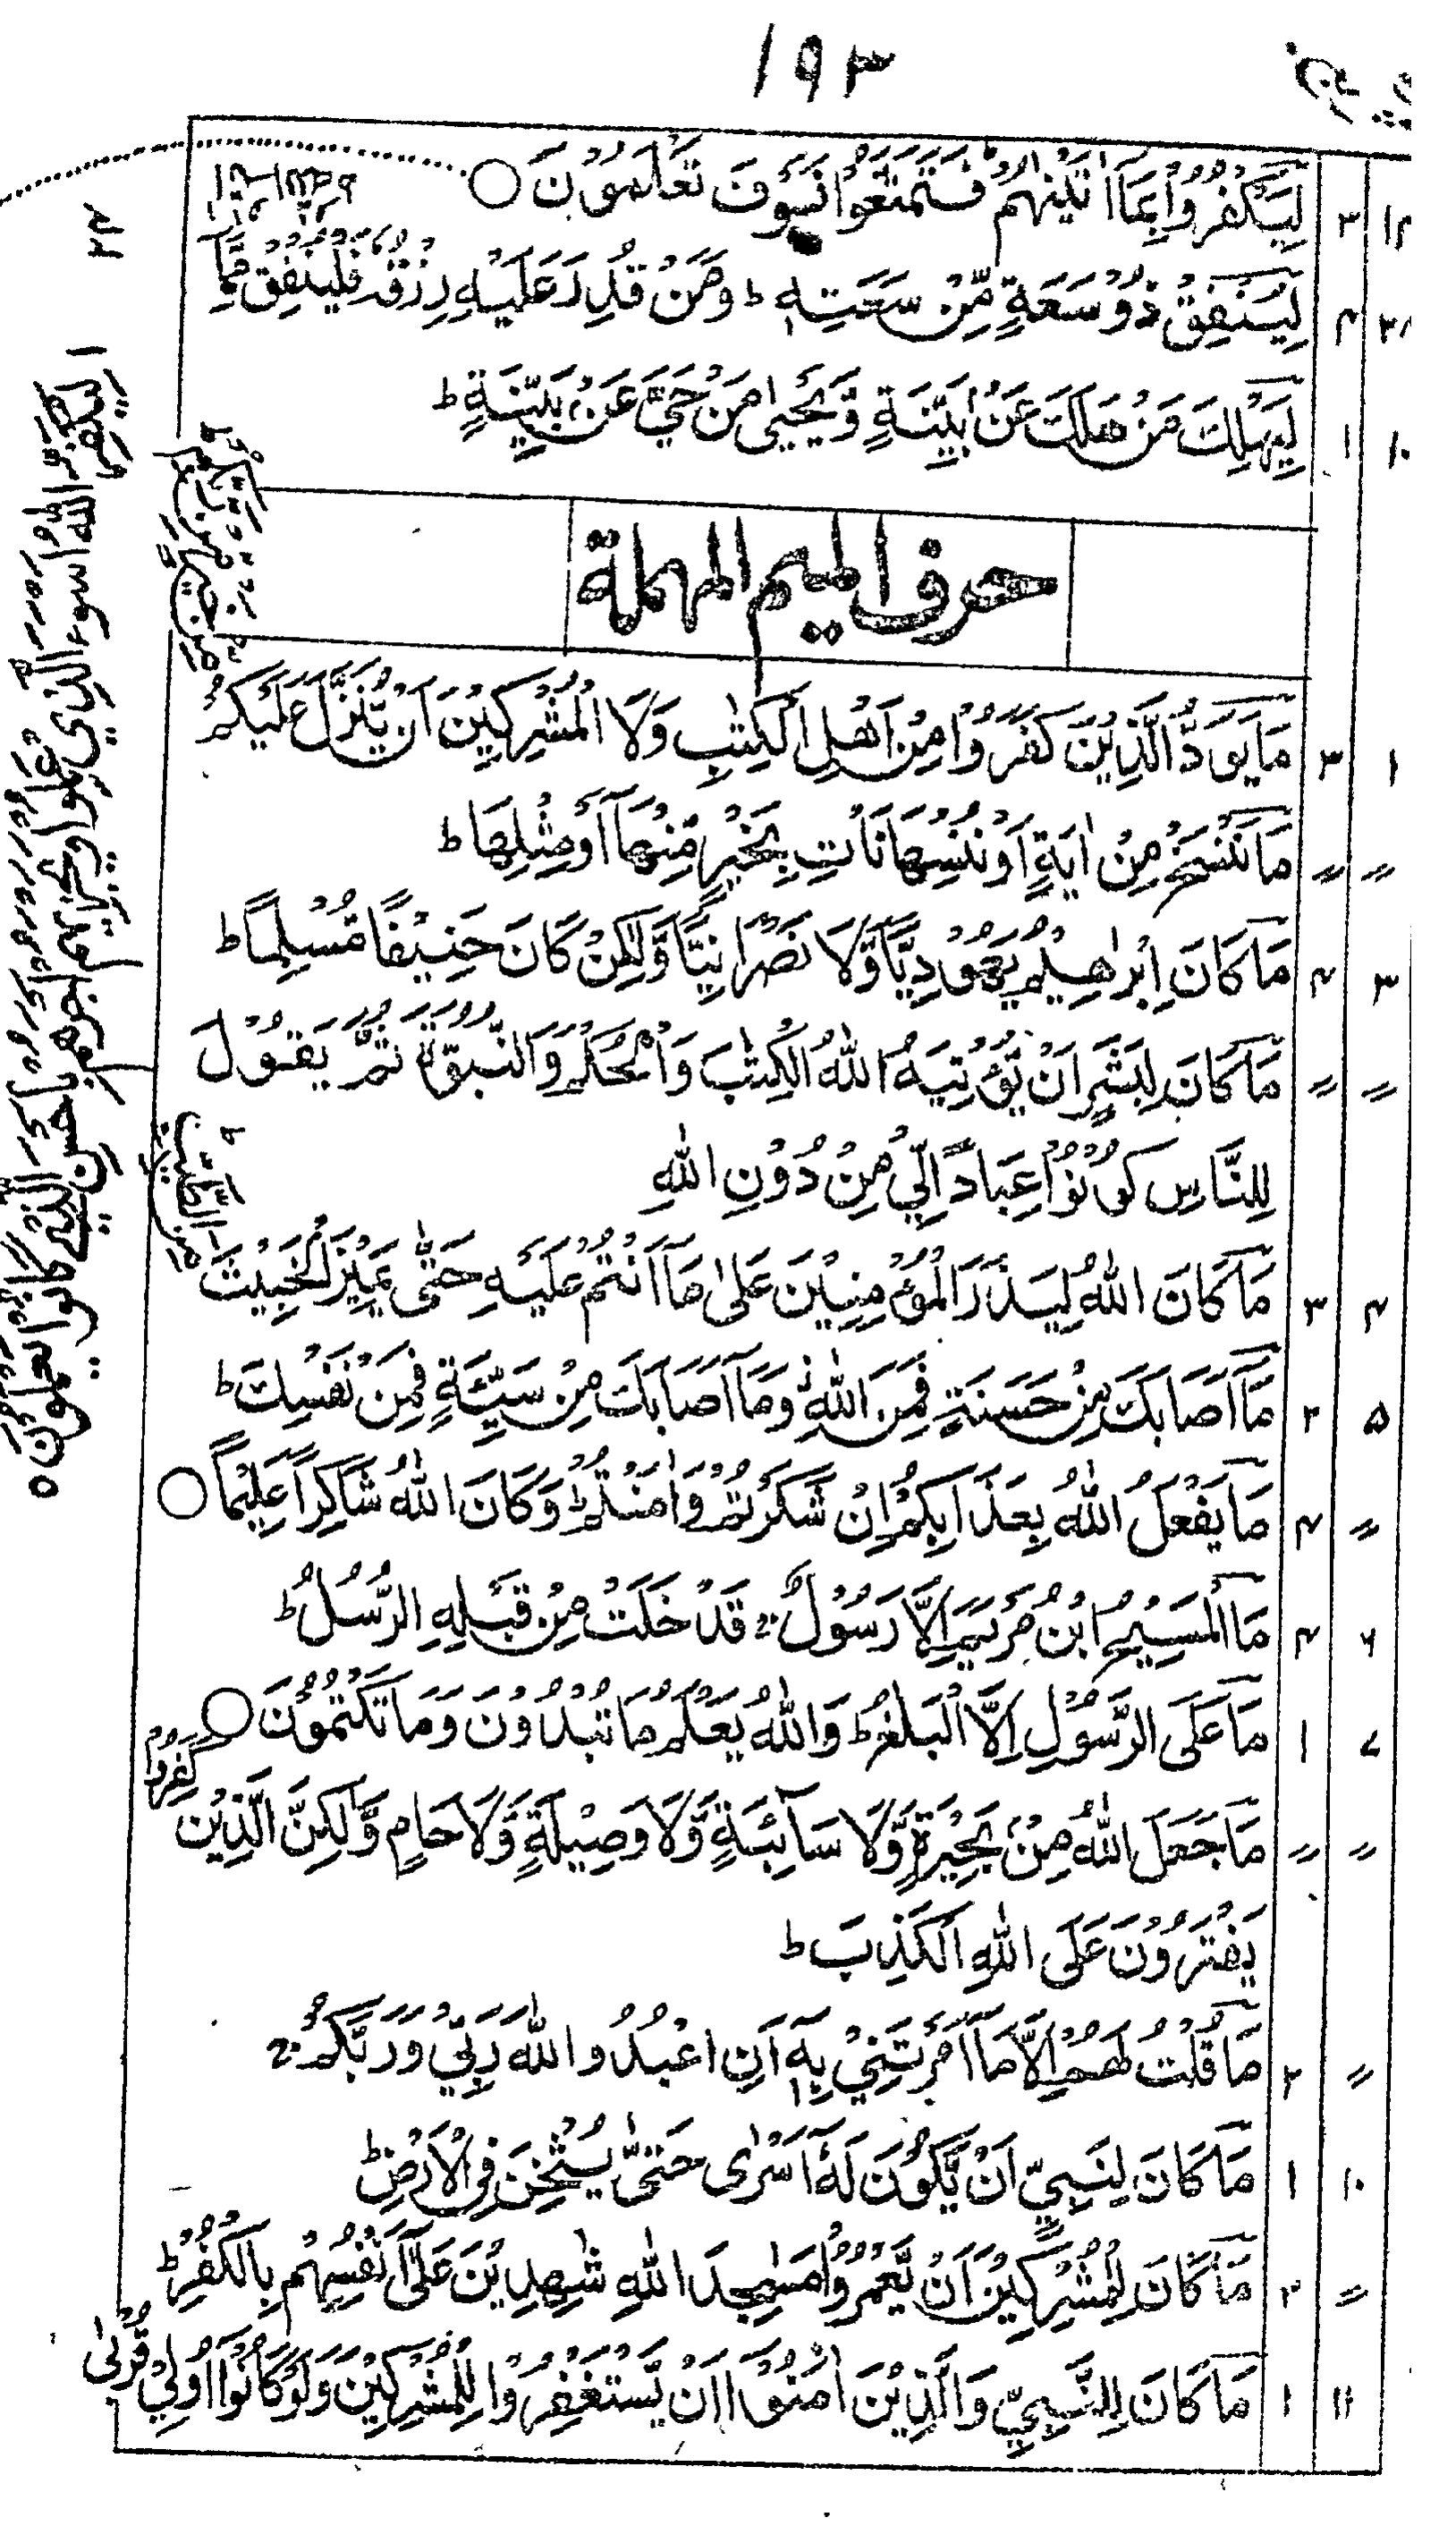 ١٩٣
لِيَكْفُرُوْا بِمَآ اٰتَيْنٰهُمْ ۖ فَتَمَتَّعُوْا فَسَوْفَ تَعْلَمُوْنَ ○ ٣
لِيُنْفِقْ ذُوْ سَعَةٍ مِّنْ سَعَتِهٖ ط وَمَنْ قُدِرَ عَلَيْهِ رِزْقُهٗ فَلْيُنْفِقْ مِمَّا ٤
لِيَهْلِكَ مَنْ هَلَكَ عَنْۢ بَيِّنَةٍ وَّيَحْيٰى مَنْ حَيَّ عَنْۢ بَيِّنَةٍ ط ١ ١٠
حرف الميم المهملة
مَا يَوَدُّ الَّذِيْنَ كَفَرُوْا مِنْ اَهْلِ الْكِتٰبِ وَلَا الْمُشْرِكِيْنَ اَنْ يُّنَزَّلَ عَلَيْكُمْ ٣ ١
مَا نَنْسَخْ مِنْ اٰيَةٍ اَوْ نُنْسِهَا نَاْتِ بِخَيْرٍ مِّنْهَآ اَوْ مِثْلِهَا ط 〃 〃
مَا كَانَ اِبْرٰهِيْمُ يَهُوْدِيًّا وَّلَا نَصْرَانِيًّا وَّلٰكِنْ كَانَ حَنِيْفًا مُّسْلِمًا ط ٤ ٣
مَا كَانَ لِبَشَرٍ اَنْ يُّؤْتِيَهُ اللّٰهُ الْكِتٰبَ وَالْحُكْمَ وَالنُّبُوَّةَ ثُمَّ يَقُوْلَ 〃 〃
لِلنَّاسِ كُوْنُوْا عِبَادًا لِّيْ مِنْ دُوْنِ اللّٰهِ
مَا كَانَ اللّٰهُ لِيَذَرَ الْمُؤْمِنِيْنَ عَلٰى مَآ اَنْتُمْ عَلَيْهِ حَتّٰى يَمِيْزَ الْخَبِيْثَ ٣ ٤
مِنَ الطَّيِّبِ
مَآ اَصَابَكَ مِنْ حَسَنَةٍ فَمِنَ اللّٰهِ ز وَمَآ اَصَابَكَ مِنْ سَيِّئَةٍ فَمِنْ نَّفْسِكَ ط ٢ ٥
مَا يَفْعَلُ اللّٰهُ بِعَذَابِكُمْ اِنْ شَكَرْتُمْ وَاٰمَنْتُمْ ط وَكَانَ اللّٰهُ شَاكِرًا عَلِيْمًا ○ ٤ 〃
مَا الْمَسِيْحُ ابْنُ مَرْيَمَ اِلَّا رَسُوْلٌ ج قَدْ خَلَتْ مِنْ قَبْلِهِ الرُّسُلُ ط ٤ ٦
مَا عَلَى الرَّسُوْلِ اِلَّا الْبَلٰغُ ط وَاللّٰهُ يَعْلَمُ مَا تُبْدُوْنَ وَمَا تَكْتُمُوْنَ ○ ١ ٧
مَا جَعَلَ اللّٰهُ مِنْۢ بَحِيْرَةٍ وَّلَا سَآئِبَةٍ وَّلَا وَصِيْلَةٍ وَّلَا حَامٍ وَّلٰكِنَّ الَّذِيْنَ كَفَرُوْا 〃 〃
يَفْتَرُوْنَ عَلَى اللّٰهِ الْكَذِبَ ط
مَا قُلْتُ لَهُمْ اِلَّا مَآ اَمَرْتَنِيْ بِهٖٓ اَنِ اعْبُدُوا اللّٰهَ رَبِّيْ وَرَبَّكُمْ ج ٢ 〃
مَا كَانَ لِنَبِيٍّ اَنْ يَّكُوْنَ لَهٗٓ اَسْرٰى حَتّٰى يُثْخِنَ فِى الْاَرْضِ ط ١ ١٠
مَا كَانَ لِلْمُشْرِكِيْنَ اَنْ يَّعْمُرُوْا مَسٰجِدَ اللّٰهِ شٰهِدِيْنَ عَلٰٓى اَنْفُسِهِمْ بِالْكُفْرِ ط ٢ 〃
مَا كَانَ لِلنَّبِيِّ وَالَّذِيْنَ اٰمَنُوْٓا اَنْ يَّسْتَغْفِرُوْا لِلْمُشْرِكِيْنَ وَلَوْ كَانُوْٓا اُولِيْ قُرْبٰى ١ ١١
٢٤
لِيُكَفِّرَ اللّٰهُ اَسْوَءَ الَّذِيْ عَمِلُوْا وَيَجْزِيَهُمْ اَجْرَهُمْ بِاَحْسَنِ الَّذِيْ كَانُوْا يَعْمَلُوْنَ ○